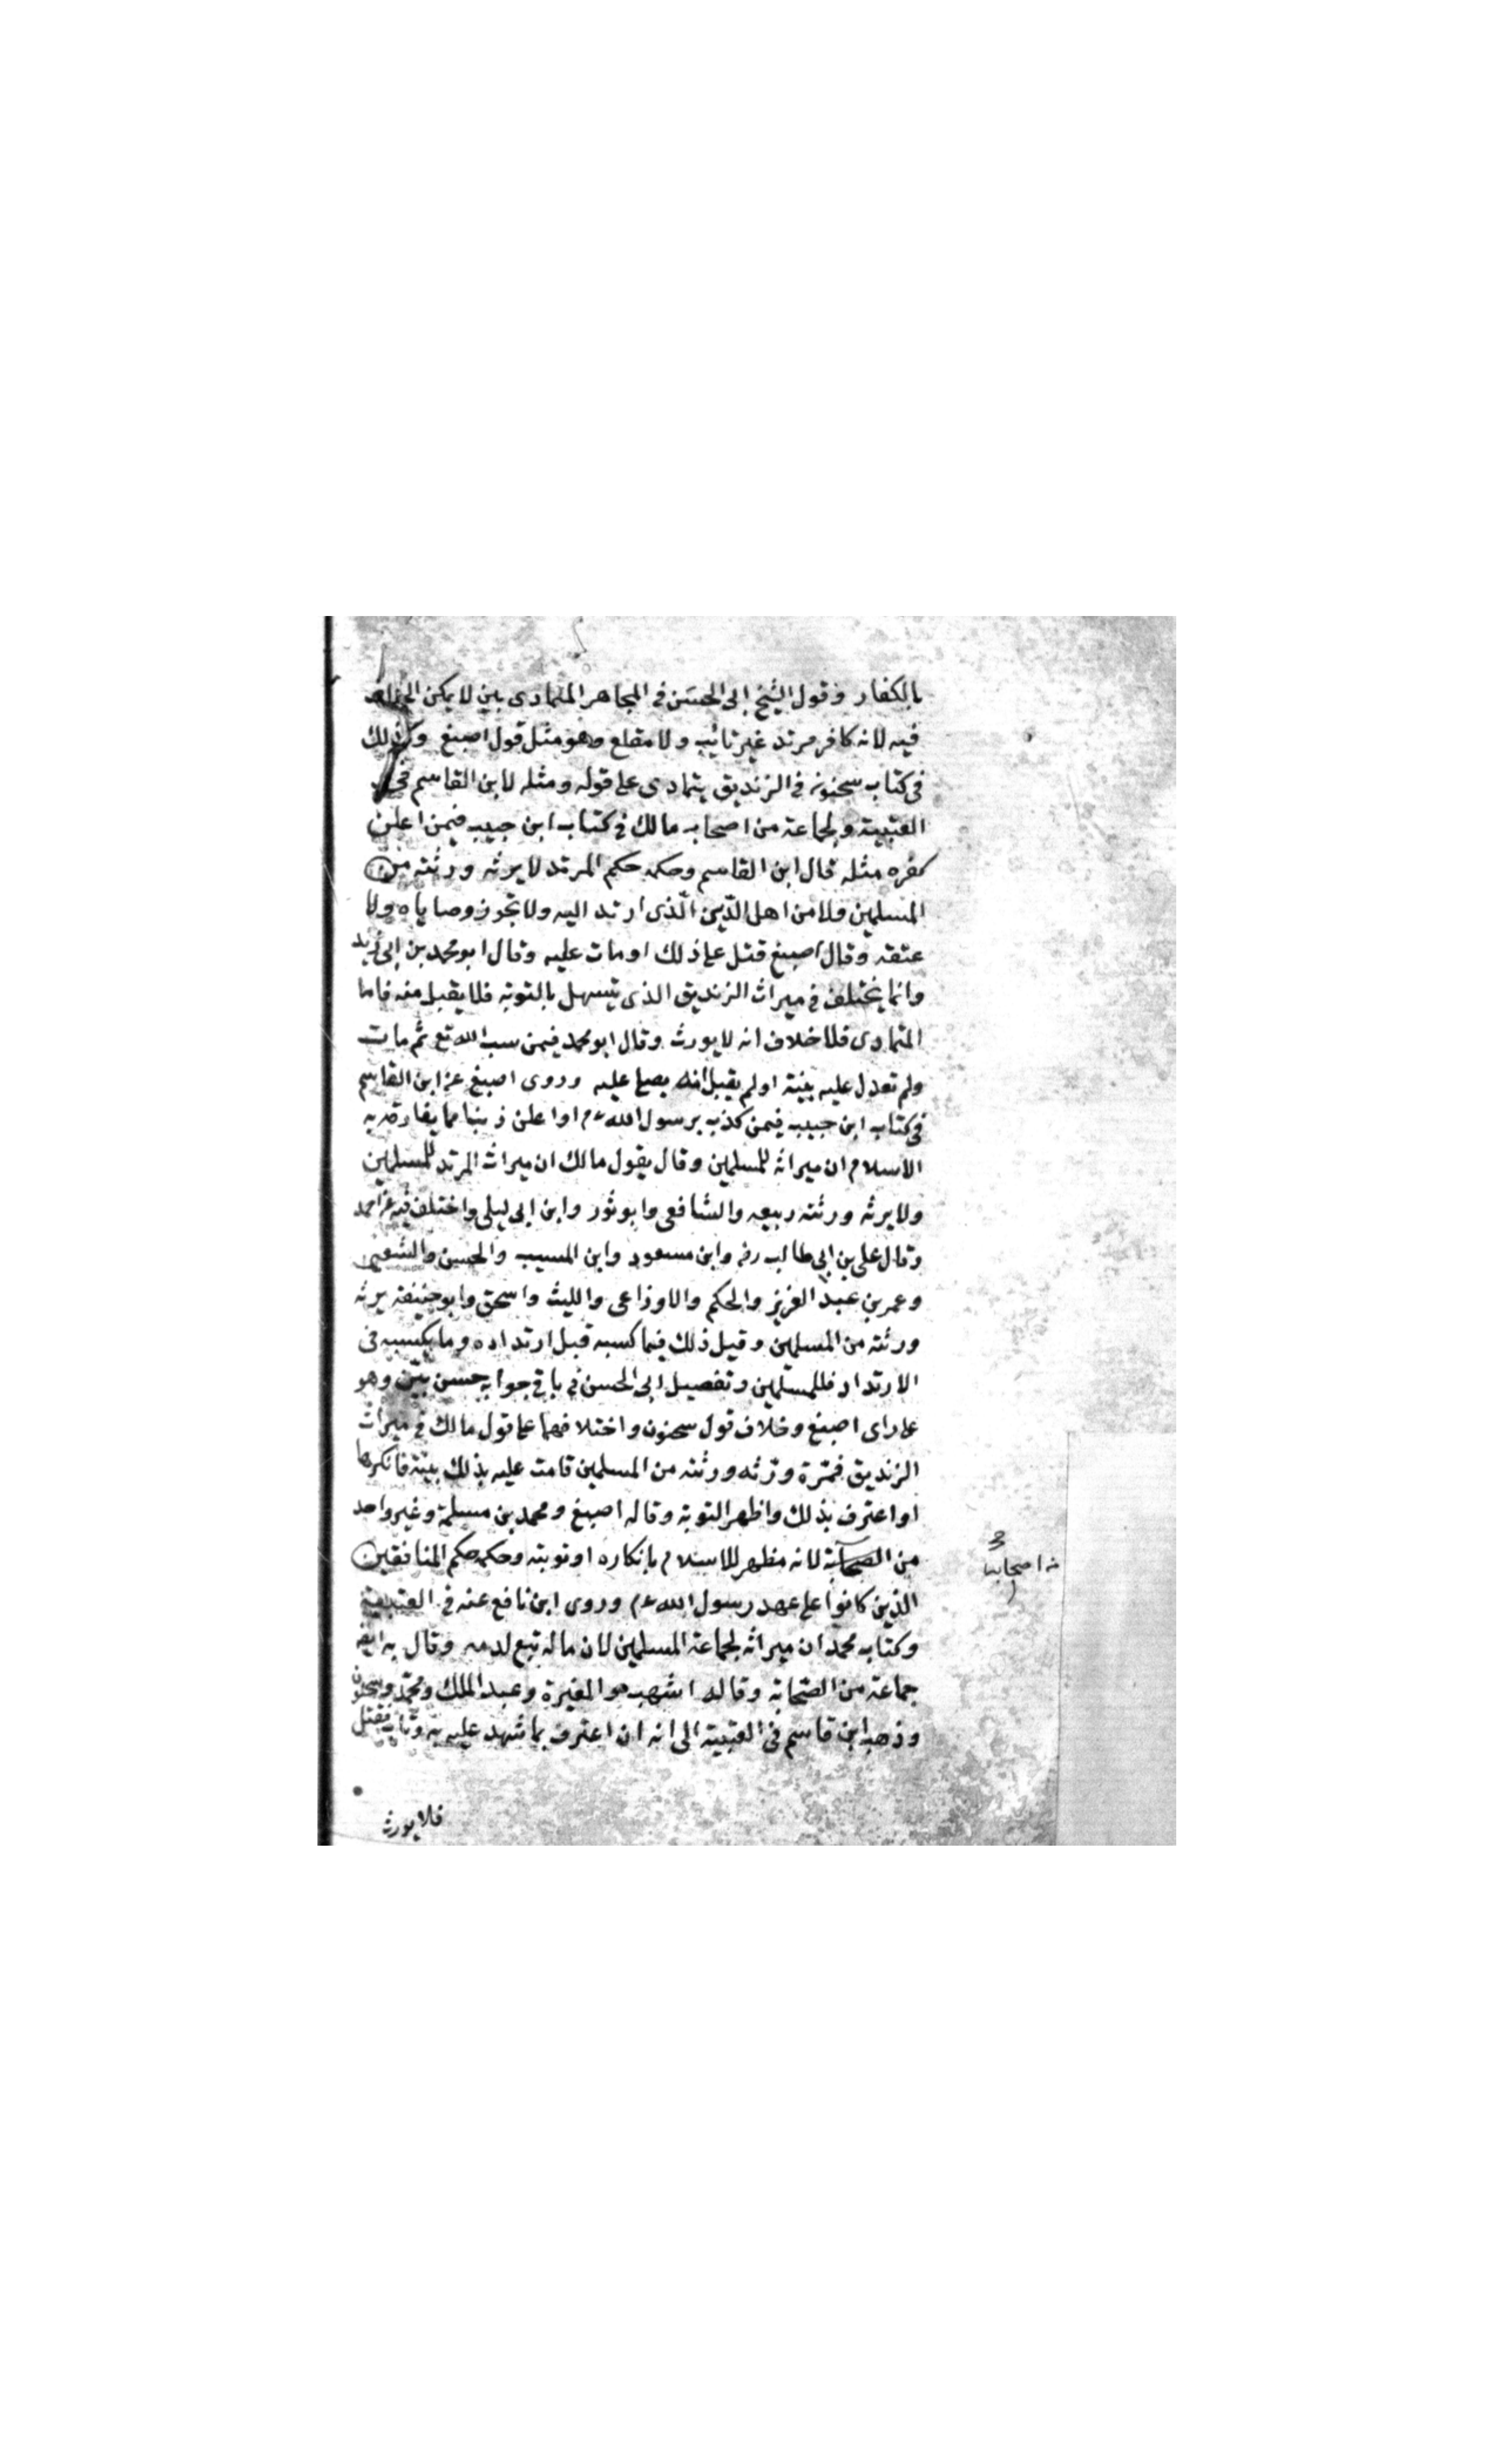 بالكفار وقول الشيخ ابى الحسن فى المجاهر المتمادى بين لا يمكن الخلاف
فيه لانه كافر مرتد غير تائب ولا مقلع وهو مثل قول اصبغ وكذلك
فى كتاب سحنون فى الزنديق يتمادى على قوله ومثله لابن القاسم فى
العتبية ولجماعة من اصحاب مالك فى كتاب ابن حبيب فيمن اعلن
كفره مثله قال ابن القاسم وحكمه حكم المرتد لا يرثه ورثته من
المسلمين ولا من اهل الدين الذى ارتد اليه ولا تجوز وصاياه ولا
عتقه وقال اصبغ قتل على ذلك او مات عليه وقال ابو محمد بن ابى زيد
وانما يختلف فى ميراث الزنديق الذى يتسهل بالتوبة فلا يقبل منه فاما
المتمادى فلا خلاف انه لا يورث وقال ابو محمد فيمن سب الله تع ثم مات
ولم تعدل عليه بينة او لم يقبل انه يصلى عليه وروى اصبغ عن ابن القاسم
فى كتاب ابن حبيب فيمن كذب برسول الله عم او اعلن دينا مما يفارق به
الاسلام ان ميراثه للمسلمين وقال بقول مالك ان ميراث المرتد للمسلمين
ولا يرثه ورثته ربيعه والشافعى وابو ثور وابن ابى ليلى واختلف فيه عن احمد
وقال على بن ابى طالب رضه وابن مسعود وابن المسيب والحسن والشعبى
وعمر بن عبد العزيز والحكم والاوزاعى والليث واسحق وابو حنيفه يرثه
ورثته من المسلمين وقيل ذلك فيما كسبه قبل ارتداده وما يكسبه فى
الارتداد فللمسلمين وتفصيل ابى الحسن فى باقى جوابه حسن بين وهو
على راى اصبغ وخلاف قول سحنون واختلافهما على قول مالك فى ميراث
الزنديق فمرة ورثه ورثته من المسلمين قامت عليه بذلك بينة فانكرها
او اعترف بذلك واظهر التوبة وقاله اصبغ ومحمد بن مسلمة وغير واحد
من الصحابة لانه مظهر للاسلام بانكاره او توبته وحكمه حكم المنافقين
من اصحابنا
الذين كانوا على عهد رسول الله عم وروى ابن نافع عنه فى العتبية
وكتاب محمد ان ميراثه لجماعة المسلمين لان ماله تبع لدمه وقال به ايضا
جماعة من الصحابة وقاله اشهب والمغيرة وعبد الملك ومحمد وسحنون
وذهب ابن قاسم فى العتبية الى انه ان اعترف بما شهد عليه به وتاب فقتل
فلا يورث